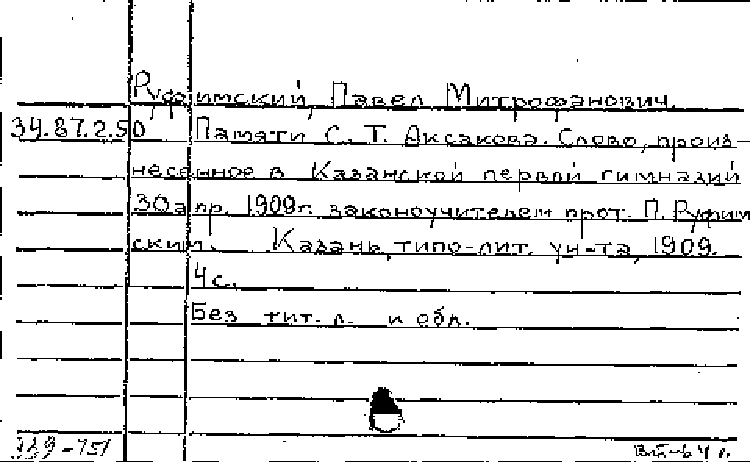 Руфимский, Павел Митрофанович.
34.87.2.50 Памяти С. Т. Аксакова. Слово, произ-
несенное в Казанской первой гимназий
30 апр. 1909г. законоучителем прот. П. Руфим
ским. Казань, типо-лит. ун-та, 1909.
4с.
Без тит. л. и обл.